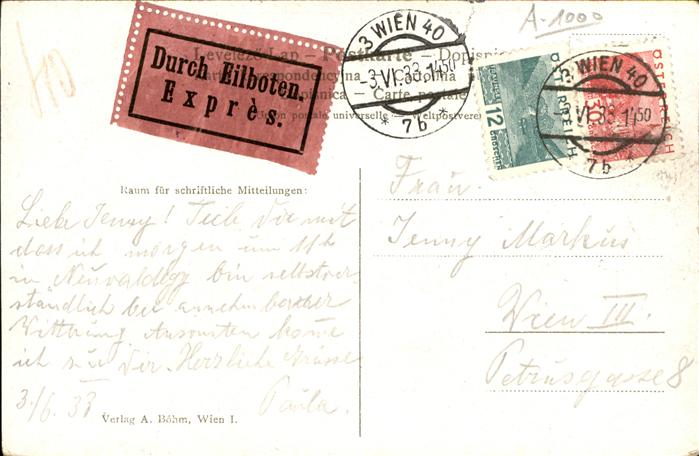 A-1000
Levelező-Lap — Postkarte — Dopisnice
Durch Eilboten.
Exprès.
3 WIEN 40
-3.VI.33.1450
* 7b *
12
GROSCHEN
ÖSTERREICH
3 WIEN 40
-3.VI.33 1450
7b *
ÖSTERREICH
Carte postale
postale universelle — Weltpostverein
Raum für schriftliche Mitteilungen:
Liebe Jenny! Teile Dir mit
dass ich morgen um 11h
in Neuwaldegg bin selbstver-
ständlich bei annehmbarer
Wittrung Ansonsten komme
ich zu Dir. Herzliche Grüsse
3./6.33 Paula.
Verlag A. Böhm, Wien I.
Frau
Jenny Markus
Wien III.
Petrusgasse 8